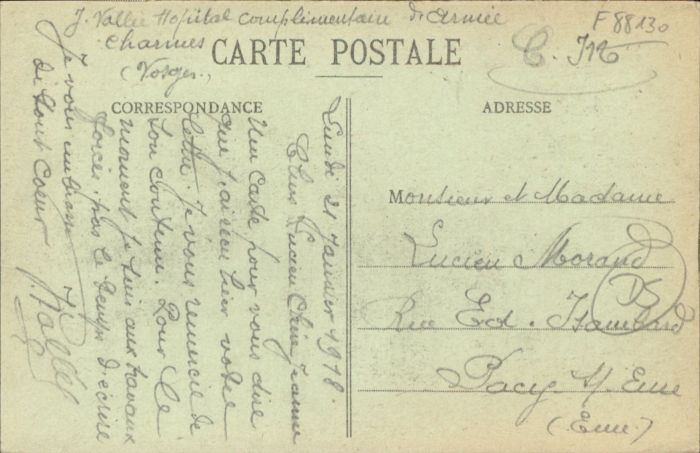 J. Vallée Hopital complimentaire d'Armée
Charmes
(Vosges.)
F 88130
CARTE POSTALE
CORRESPONDANCE
ADRESSE
Lundi 21 Janvier 1918.
Cher Lucien Chère Jeanne
Une carte pour vous dire
que j'ai reçu hier votre
lettre. Je vous remercie de
son contenu. Pour le
moment je suis aux travaux
forcés, pas le temps d'écrire
Je vous embrasse
de tout coeur
J. Vallée
Monsieur et Madame
Lucien Morand
Rue Ed. Isambard
Pacy s/ Eure
(Eure.)